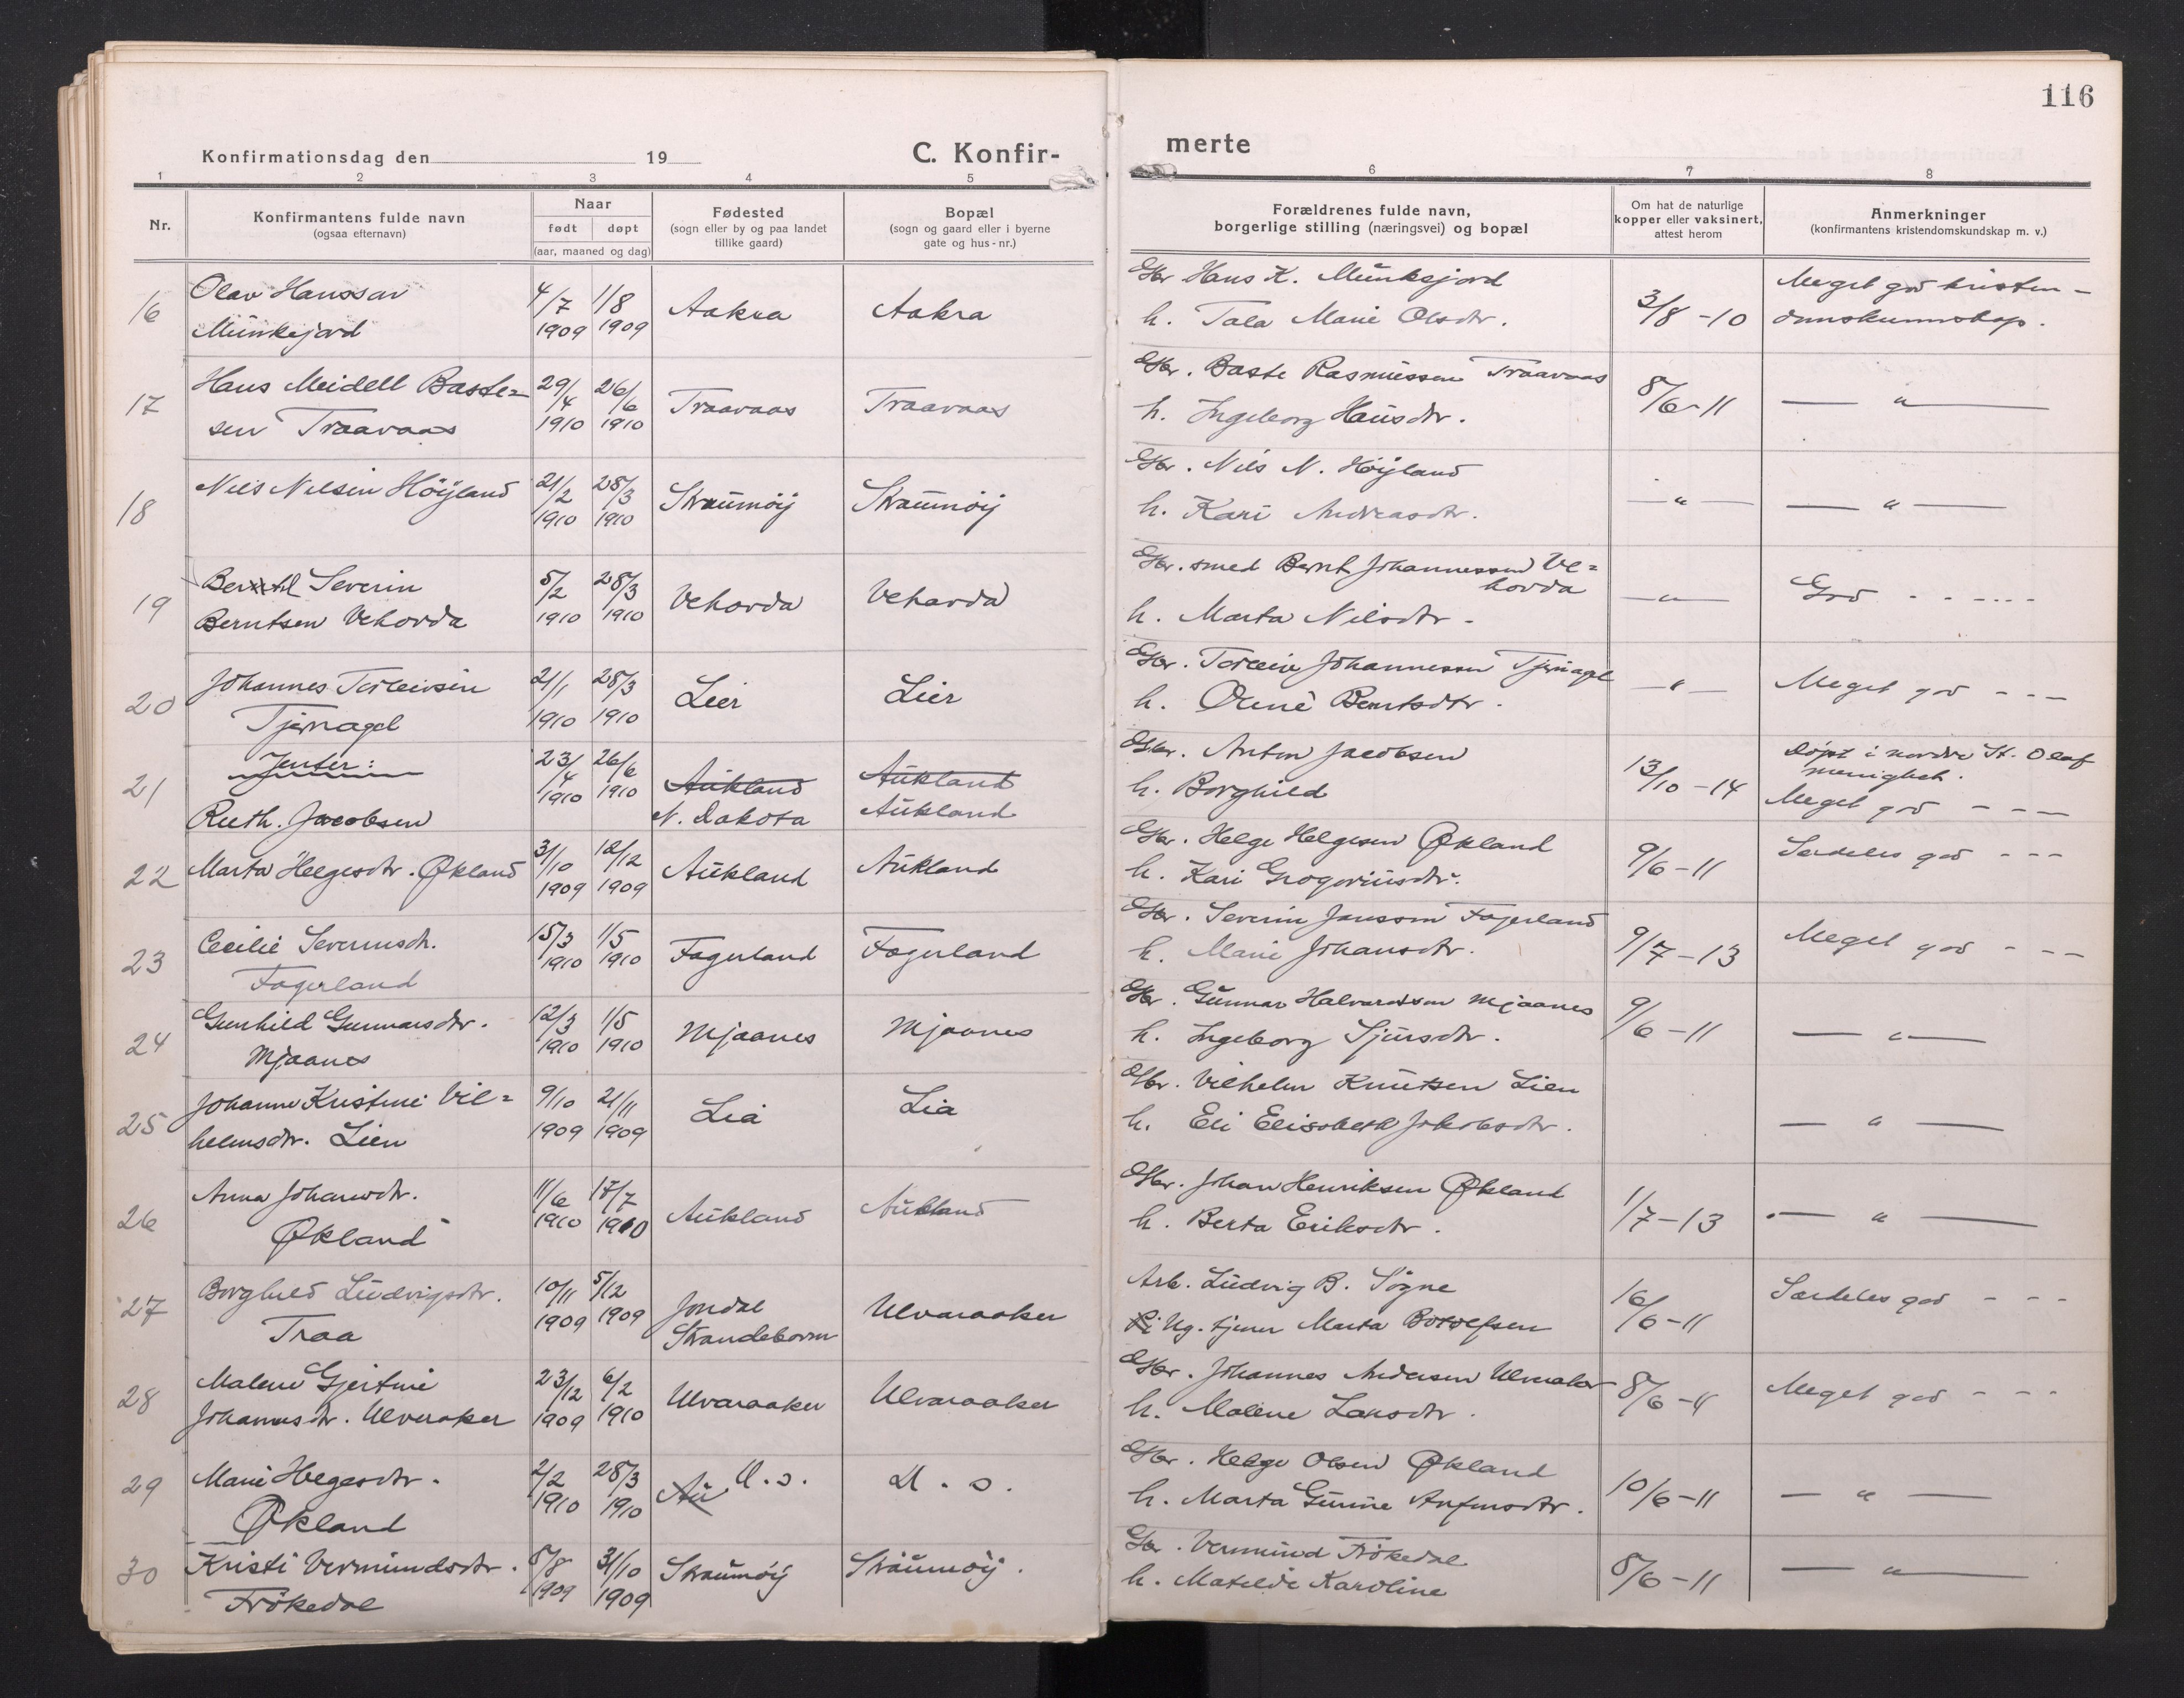 116
Konfirmationsdag den 19 C. Konfir-
merte
1 2 3 4 5
6 7 8
Nr.
Konfirmantens fulde navn
(ogsaa efternavn)
Naar
født døpt
(aar, maaned og dag)
Fødested
(sogn eller by og paa landet
tillike gaard)
Bopæl
(sogn og gaard eller i byerne
gate og hus-nr.)
Forældrenes fulde navn,
borgerlige stilling (næringsvei) og bopæl
Om hat de naturlige
kopper eller vaksinert,
attest herom
Anmerkninger
(konfirmantens kristendomskundskap m. v.)
16 Olav Hanssøn 4/7 1/8 Aakra Aakra Gbr Hans K. Munkejord 3/8-10 Meget god kristen-
Munkejord 1909 1909 h. Tala Marie Olsdtr. domskunnskap.
17 Hans Meidell Baste= 29/4 26/6 Traavaas Traavaas Gbr. Baste Rasmussen Traavaas 8/6-11 — " —
sen Traavaas 1910 1910 h. Ingeborg Hansdtr.
18 Nils Nilsen Höijland 21/2 28/3 Straumöij Straumöij Gbr. Nils N. Höijland — " — — " —
1910 1910 h. Kari Andreasdtr.
19 Severin 5/2 28/3 Vehovda Vehovda Gbr. smed Bernt Johannessen Ve=
hovda — " — God - - - - -
Berntsen Vehovda 1910 1910 h. Marta Nilsdtr.
20 Johannes Torleivsen 21/1 28/3 Lier Lier Gbr. Torleiv Johannessen Tjernagel — " — Meget god - - -
Tjernagel 1910 1910 h. Berntsdtr.
21 Jenter: 23/4 26/6 Aukland Aukland Gbr. Anton Jacobsen 13/10-14 Döpt i nordre St. Olaf
1910 1910 menighet.
Ruth. Jacobsen N. Dakota Aukland h. Borghild Meget god - - -
22 Marta Helgesdtr. Økland 3/10 12/12 Aukland Aukland Gbr. Helge Helgesen Økland 9/6-11 Særdeles god - - -
1909 1909 h. Kari Gregoriusdtr.
23 Cecilie Severinsdtr. 15/3 1/5 Fagerland Fagerland Gbr. Severin Janssen Fagerland 9/7-13 Meget god - - -
Fagerland 1910 1910 h. Marie Johansdtr.
24 Gunhild Gunnarsdtr. 12/3 1/5 Mjaanes Mjaanes Gbr. Gunnar Halvardsson Mjaanes 9/6-11 — " —
Mjaanes 1910 1910 h. Ingeborg Sjursdtr.
25 Johanne Kristine Vil= 9/10 21/11 Lia Lia Gbr. Vilhelm Knutsen Lien — " —
helmsdtr. Lien 1909 1909 h. Eli Elisabeth Jakobsdtr.
26 Anna Johansdtr. 11/6 17/7 Aukland Aukland Gbr. Johan Henriksen Økland 1/7-13 — " —
Økland 1910 1910 h. Berta Eriksdtr.
27 Borghild Ludvigsdtr. 10/11 5/12 Jondal Ulvaraaker Arb. Ludvig B. Sögne 16/6-11 Særdeles god - - -
Traa 1909 1909 Strandebarm Ug. tjener Marta Botolfsen
28 Malene Gjertine 23/12 6/2 Ulvaraaker Ulvaraaker Gbr. Johannes Andersen Ulveraker 8/6-11 Meget god - - -
Johannesdtr. Ulveraker 1909 1910 h. Malene Larsdtr.
29 Marie Helgesdtr. 2/2 28/3 Au U. s. U. s. Gbr. Helge Olsen Økland 10/6-11 — " —
Økland 1910 1910 h. Marta Gurine Anfinsdtr.
30 Kristi Vermundsdtr. 8/8 31/10 Straumöij Straumöij. Gbr. Vermund Frökedal 8/6-11 — " —
Frökedal 1909 1909 h. Matilde Karoline